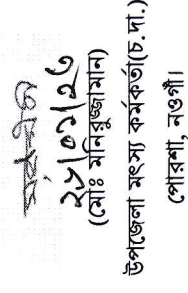 (মোঃ মনিরুজ্জামান)
উপজেলা মৎস্য কর্মকর্তা(চ.দা.)
পোরশা, নওগাঁ।